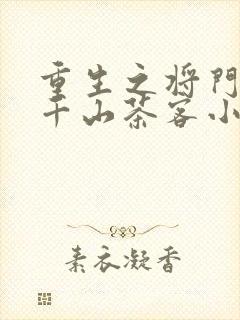 重生之将门
千山茶客小
素衣凝香